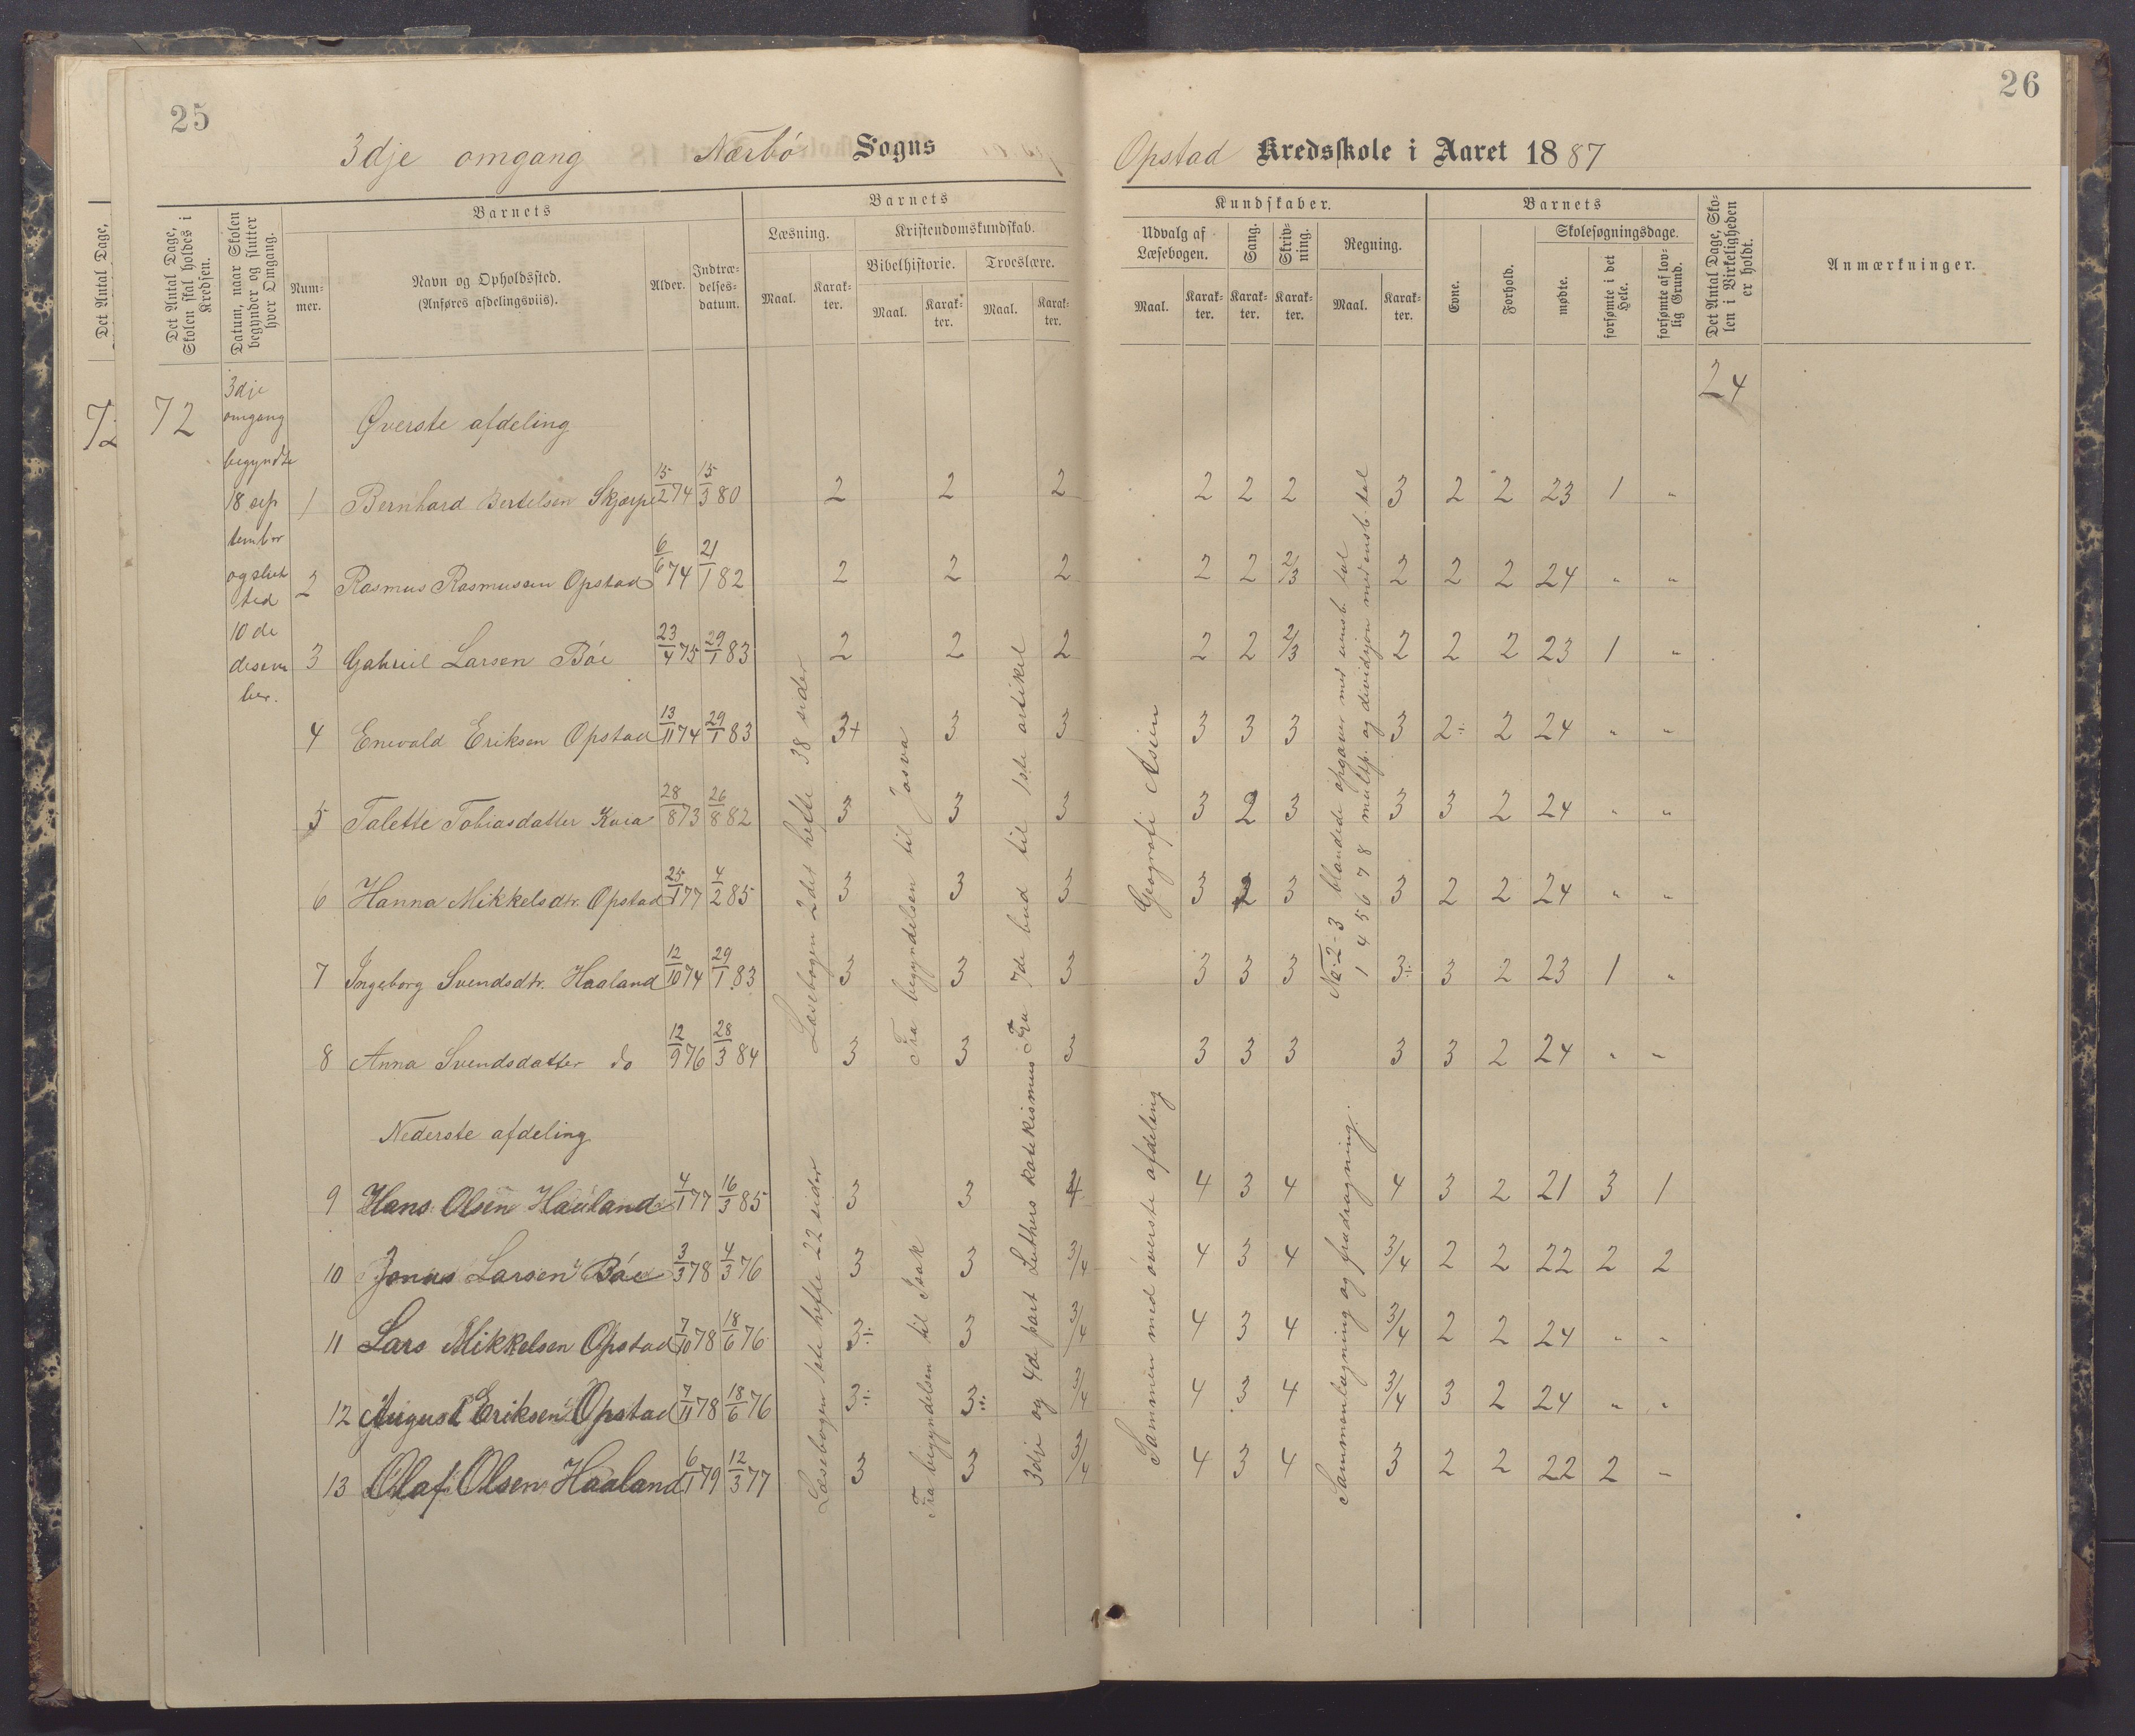 25
26
3dje omgang Nærbö Sogns
Opstad Kredsskole i Aaret 1887
Det Antal Dage,
Det Antal Dage, Skolen skal holdes i Kredsen.
Datum, naar Skolen begynder og slutter hver Omgang.
Barnets
Num-mer.
Navn og Opholdssted.
(Anføres afdelingsviis).
Alder.
Indtræ-delses-datum.
Barnets
Læsning.
Maal.
Karak-ter.
Kristendomskundskab.
Bibelhistorie.
Maal.
Karak-ter.
Troeslære.
Maal.
Karak-ter.
Kundskaber.
Udvalg af Læsebogen.
Maal.
Karak-ter.
Sang.
Karak-ter.
Skriv-ning.
Karak-ter.
Regning.
Maal.
Karak-ter.
Barnets
Evne.
Forhold.
Skolesøgningsdage.
mødte.
forsømte i det Hele.
forsømte af lov-lig Grund.
Det Antal Dage, Sko-len i Virkeligheden er holdt.
Anmærkninger.
72
72
3dje
omgang
begyndte
18 sep
tember
og slut
ted
10 de
desem
ber.
24
Øverste afdeling
1 Bernhard Bertelsen Skjærpe 15/2 74 15/3 80 2 2 2 2 2 2 3 2 2 23 1 "
2 Rasmus Rasmussen Opstad 6/6 74 21/1 82 2 2 2 2 2 2/3 2 2 2 24 " "
3 Gabriel Larsen Böe 23/4 75 29/1 83 2 2 2 2 2 2/3 2 2 2 23 1 "
4 Enevald Eriksen Opstad 13/11 74 29/1 83 3+ 3 3 3 3 3 3 2÷ 2 24 " "
5 Talette Tobiasdatter Kvia 28/8 73 26/8 82 3 3 3 3 2 3 3 3 2 24 " "
6 Hanna Mikkelsdtr. Opstad 25/1 77 4/2 85 3 3 3 3 2 3 3 2 2 24 " "
7 Ingeborg Svendsdtr. Haaland 12/10 74 29/1 83 3 3 3 3 3 3 3÷ 3 2 23 1 "
8 Anna Svendsdatter do 12/9 76 28/3 84 3 3 3 3 3 3 3 3 2 24 " "
Læsebogen 2det hefte 38 sider
Fra begyndelsen til Josva
Fra 7de bud til 1ste artikel
Geografi Asien
No. 2-3 blandede opgaver med uensb. tal
1 4 5 6 7 8 multip. og dividsjon med ensb. tal
Nederste afdeling
9 Hans Olsen Haaland 4/1 77 16/3 85 3 3 4 4 3 4 4 3 2 21 3 1
10 Jonas Larsen Böe 3/3 78 4/3 76 3 3 3/4 4 3 4 3/4 2 2 22 2 2
11 Lars Mikkelsen Opstad 7/10 78 18/6 76 3÷ 3 3/4 4 3 4 3/4 2 2 24 " "
12 August Eriksen Opstad 7/11 78 18/6 76 3÷ 3÷ 3/4 4 3 4 3/4 3 2 24 " "
13 Olaf Olsen Haaland 6/1 79 12/3 77 3 3 3/4 4 3 4 3 2 2 22 2 "
Læsebogen 1ste hefte 22 sider
Fra begyndelsen til Isak
3dje og 4de part Luthers katekismus
Sammen med överste afdeling
Sammenlægning og fradragning.